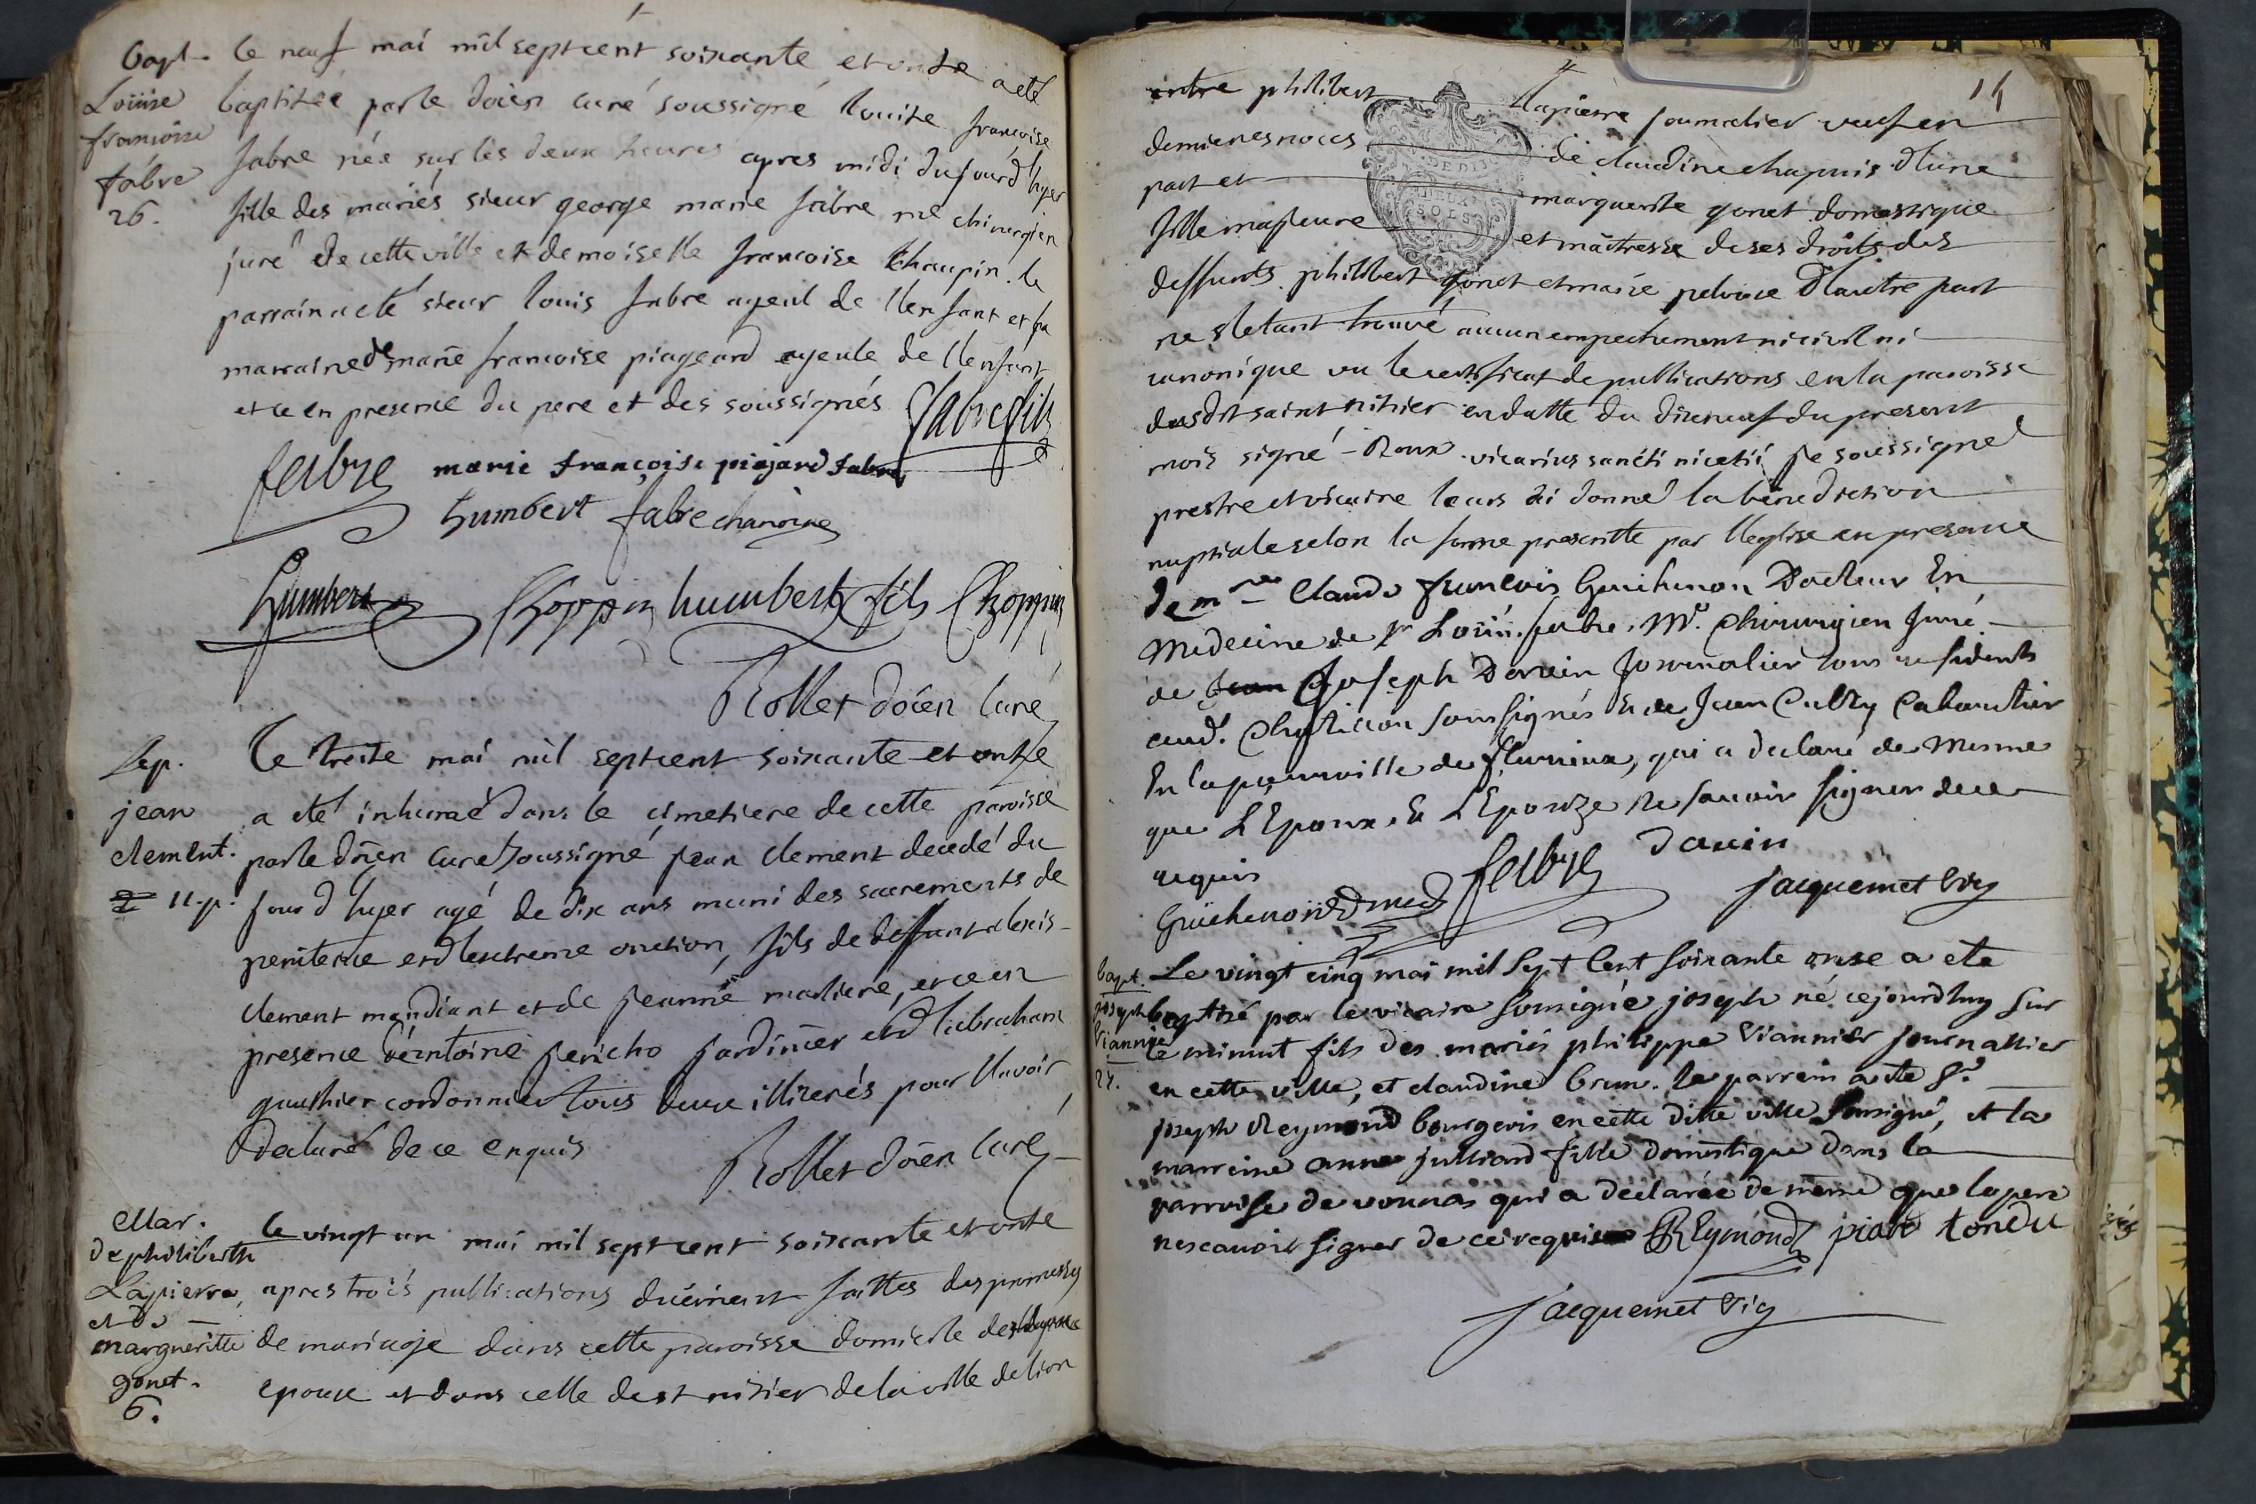 Bapt.
Loüise
françoise
fabre
26.
le neuf mai mil sept cent soixante et onze a eté
baptisée par le doïen curé soussigné louise françoise
fabre née sur les deux heures apres midi du jourd'hyer
fille des mariés sieur george marie fabre me chirurgien
juré de cette ville et demoiselle francoise Chaupin. le
parrain a eté sieur louis fabre ayeul de l'enfant et la
marraine de marie francoise piageard ayeule de l'enfant
et ce en presence du pere et des soussignés
fabre fils
fabre marie françoise piajard fabre
humbert fabre chanoine
humbert Choppin humbert fils Choppin
Rollet doïen curé
Sep.
jean
clement.
11.p.
le treize mai mil sept cent soixante et onze
a eté inhumé dans le cimetiere de cette paroisse
par le doïen curé soussigné jean clement decedé du
jour d'hyer agé de dix ans muni des sacrements de
penitence et d'extreme onction, fils de deffunt alexis
clement mendiant et de jeanne marliere, et ce en
presence d'antoine jericho jardinier et d'abraham
gauthier cordonnier tous deux illiterés pour l'avoir
declaré de ce enquis
Rollet doïen curé
Mar.
de philiberth
Lapierre,
et de
margueritte
gonet.
6.
le vingt un mai mil sept cent soixante et onze
apres trois publications düement faittes des promesses
de mariage dans cette paroisse domicile de
epouse et dans celle de st nizier de la ville de lion
14
entre philibert lapierre journalier veuf en
dernieres noces de claudine chapuis d'une
part et marguerite gonet domestique
fille majeure et maitresse de ses droits des
deffunts philibert gonet et marie pelouse d'autre part
ne s'etant trouvé aucun empechement ni civil ni
canonique vu le certificat de publications en la paroisse
dudit saint nizier en datte du dixneuf du present
mois signé - Roux vicarius sancti nicetii je soussigné
prestre et vicaire leurs ai donné la bénédiction
nuptiale selon la forme prescritte par l'eglise en presence
de mre Claude françois Guichenon Docteur En
Medecine de Sr Loüis fabre, Me. chirurgien Juré
de Joseph Dauin Journalier tous residents
aud. Chatillon soussignés & de Jean Cabaretier
En la paurville de fleurieux, qui a declaré de mesme
que L'Epoux & L'Epouze ne sauoir signer de ce
requis
Guichenon D med fabre Dauin
jacquemet vic
bapt.
joseph
Viannier
27.
Le vingt cinq mai mil sept Cent soixante onse a ete
baptisé par le vicaire sousigné joseph né cejourdhuy sur
le minuit fils des mariés philippe Viannier journallier
en cette ville, et claudine brun. le parrein a ete Sr.
joseph Reymond bourgeois en cette ditte ville sousigné, et la
marreine anne julliard fille domestique dans la
parroisse de vonnas qui a déclarée de même que le pere
ne scavoir signer de ce requis REymond piard tondu
jacquemet vic